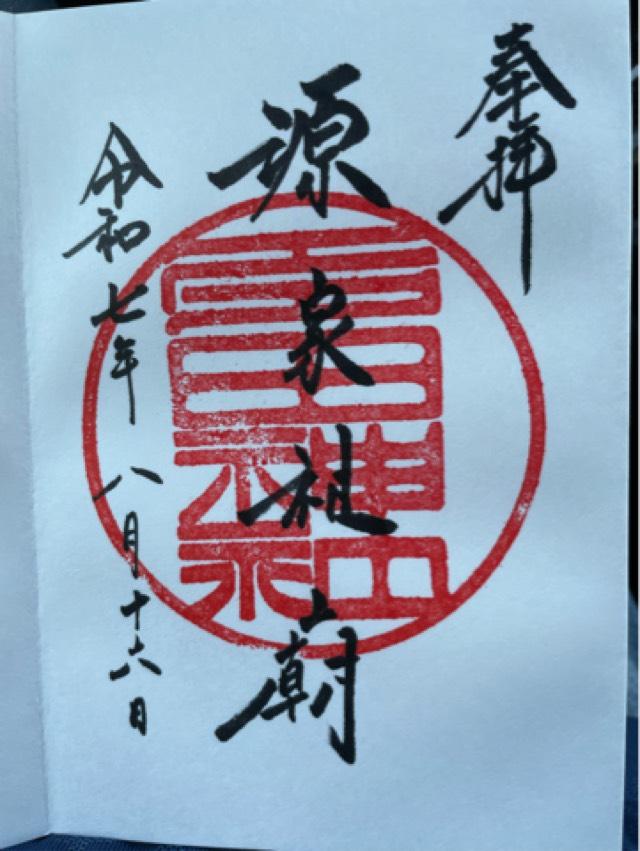 奉拝
源家祖廟
令和七年八月十六日